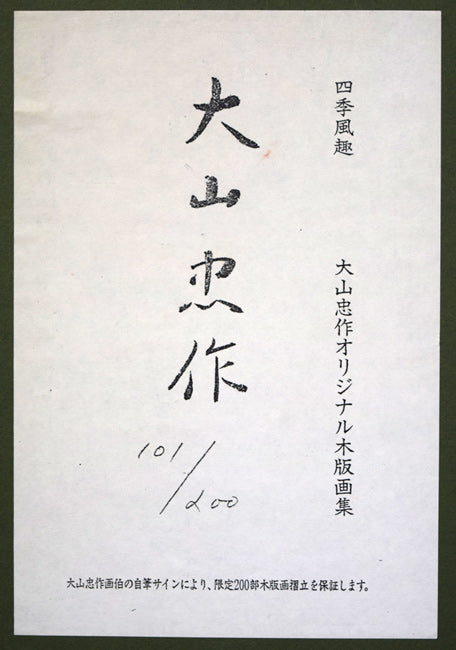 四季風趣　大山忠作オリジナル木版画集
大山忠作
101/200
大山忠作画伯の自筆サインにより、限定200部木版画摺立を保証します。